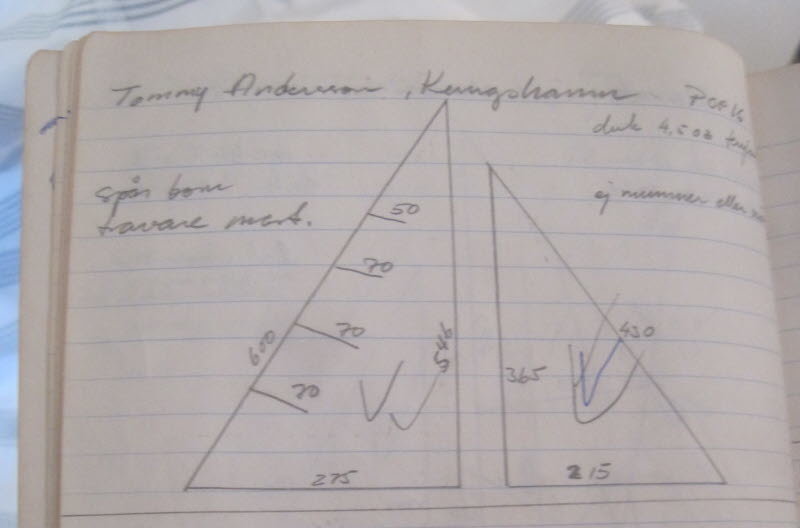 Tommy Andersson, Kungshamn
duk 4,5 oz
ej nummer eller
spår bom
travare mast.
50
70
70
70
600
275
365
430
215